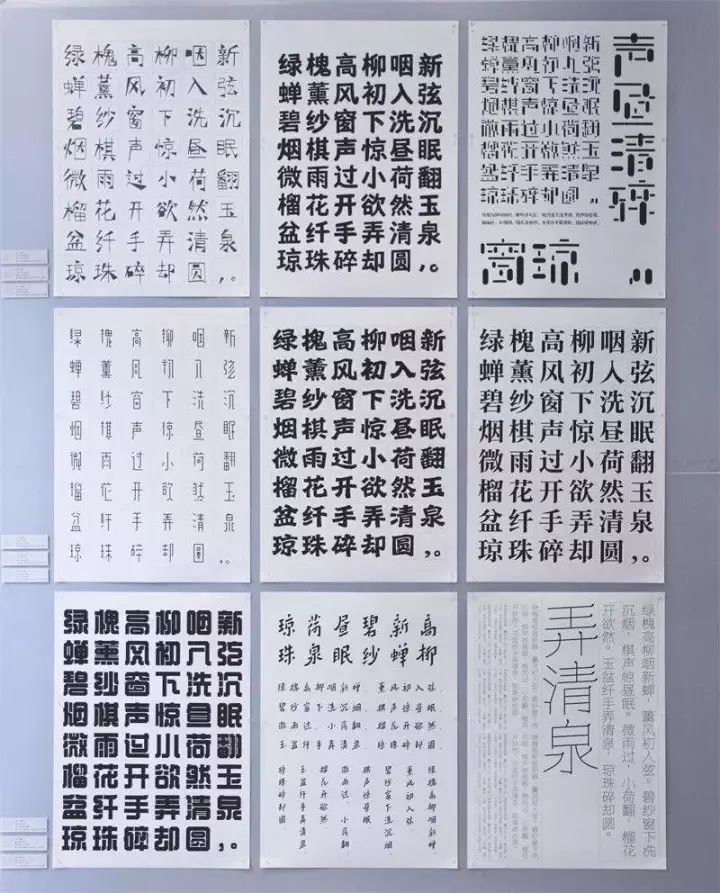 绿槐高柳咽新
蝉薰风初入弦
碧纱窗下洗沉
烟棋声惊昼眠
微雨过小荷翻
榴花开欲然玉
盆纤手弄清泉
琼珠碎却圆,。
绿槐高柳咽新
蝉薰风初入弦
碧纱窗下洗沉
烟棋声惊昼眠
微雨过小荷翻
榴花开欲然玉
盆纤手弄清泉
琼珠碎却圆,。
绿槐高柳咽新
蝉薰风初入弦
碧纱窗下洗沉
烟棋声惊昼眠
微雨过小荷翻
榴花开欲然玉
盆纤手弄清泉
琼珠碎却圆,。
声昼清碎
窗琼
绿槐高柳咽新
蝉薰风初入弦
碧纱窗下洗沉
烟棋声惊昼眠
微雨过小荷翻
榴花开欲然玉
盆纤手弄清泉
琼珠碎却圆,。
绿槐高柳咽新
蝉薰风初入弦
碧纱窗下洗沉
烟棋声惊昼眠
微雨过小荷翻
榴花开欲然玉
盆纤手弄清泉
琼珠碎却圆,。
绿槐高柳咽新
蝉薰风初入弦
碧纱窗下洗沉
烟棋声惊昼眠
微雨过小荷翻
榴花开欲然玉
盆纤手弄清泉
琼珠碎却圆,。
绿槐高柳咽新
蝉薰风初入弦
碧纱窗下洗沉
烟棋声惊昼眠
微雨过小荷翻
榴花开欲然玉
盆纤手弄清泉
琼珠碎却圆,。
高柳
新蝉
碧纱
昼眠
荷泉
琼珠
绿槐高柳咽新蝉,薰风初入弦。碧纱窗下洗
沉烟,棋声惊昼眠。微雨过,小荷翻,榴花
开欲然。玉盆纤手弄清泉,琼珠碎却圆。
弄清泉